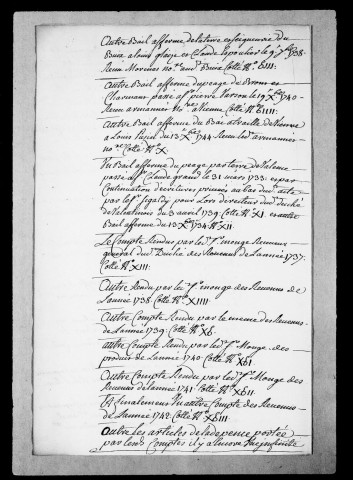 autre Bail afferme de la terre et seigneurie du
Buix a louis glaize et Claude le 9e 7bre 1738.
Reçu Morenas nore aud. Buix Cotté No bIII:
Autre Bail afferme du peage de Brons et
Charman passé a Pierre le 19 Xbre 1740
Reçu armannier nore a Vienne Cotté No bIIII:
Autre Bail afferme du Bac de Vienne
a Louis Papet du 13e Xbre 1744. Reçu led. armannier
nore Cotté No X.
Un Bail afferme du peage par terre de Valence
passé a Claude grand le 31 mars 1733: et par
Continuation d'ecritures privées au bas dud. acte
par led. Sr Sigaldy pour Lors directeur dud. Duché
de Valentinois du 3 avril 1739. Cotté No XI. et autre
Bail afferme du 13e Xbre 1734. No XII:
Le Compte Rendus par led. Sr monge Receveur
general dud. Duché des Revenus de Lannée 1737.
Cotté No XIII:
Autre Rendu par led. Sr monge des Revenus de
Lannée 1738. Cotté No XIIII:
Autre Compte Rendu par le meme des Revenus
de Lannée 1739. Cotté No Xb.
autre Compte Rendu par led. Sr Monge des
produits de Lannée 1740. Cotté No XbI
Autre Compte Rendu par led. Sr Monge des
Revenus de Lannée 1741. Cotté No XbII
Et finalement Un autre Compte des Revenus
de Lannée 1742. Cotté No XbIII
Outre Les articles de la depence portée
par lesd. Comptes il y a encore